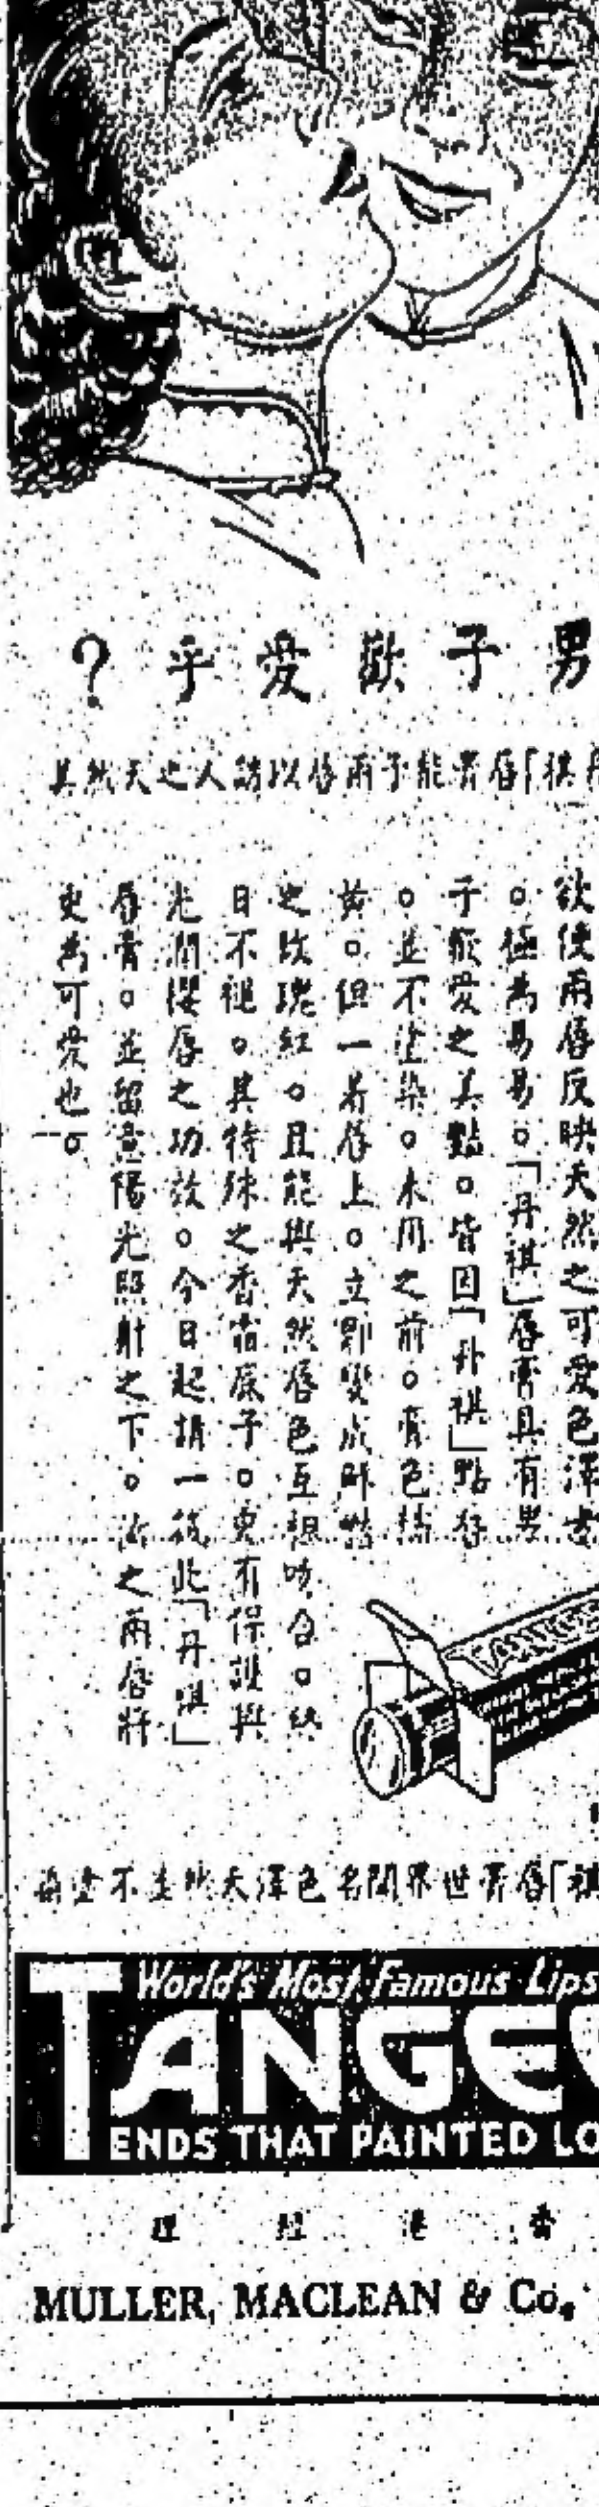 男子歡愛乎？
祺「唇膏能予兩唇以誘人之天然其
欲使兩唇反映天然之可愛色澤者
。極為易易。「丹祺」唇膏具有男
子歡愛之美豔。皆因「丹祺」點唇
。並不塗染。未用之前。膏色橘
黃。但一着唇上。立即變成鮮豔
之玫瑰紅。且能與天然唇色互相吻合。終
日不褪。其特殊之香脂原子。更有保護與
光潤櫻唇之功效。今日起購一枝此「丹祺」
唇膏。並留意陽光照射之下。之兩唇將
更為可愛也。
TANGEE
祺「唇膏世界聞名色澤天然並不塗
World's Most Famous Lips
TANGEE
ENDS THAT PAINTED LO
香港經理
MULLER, MACLEAN & Co.